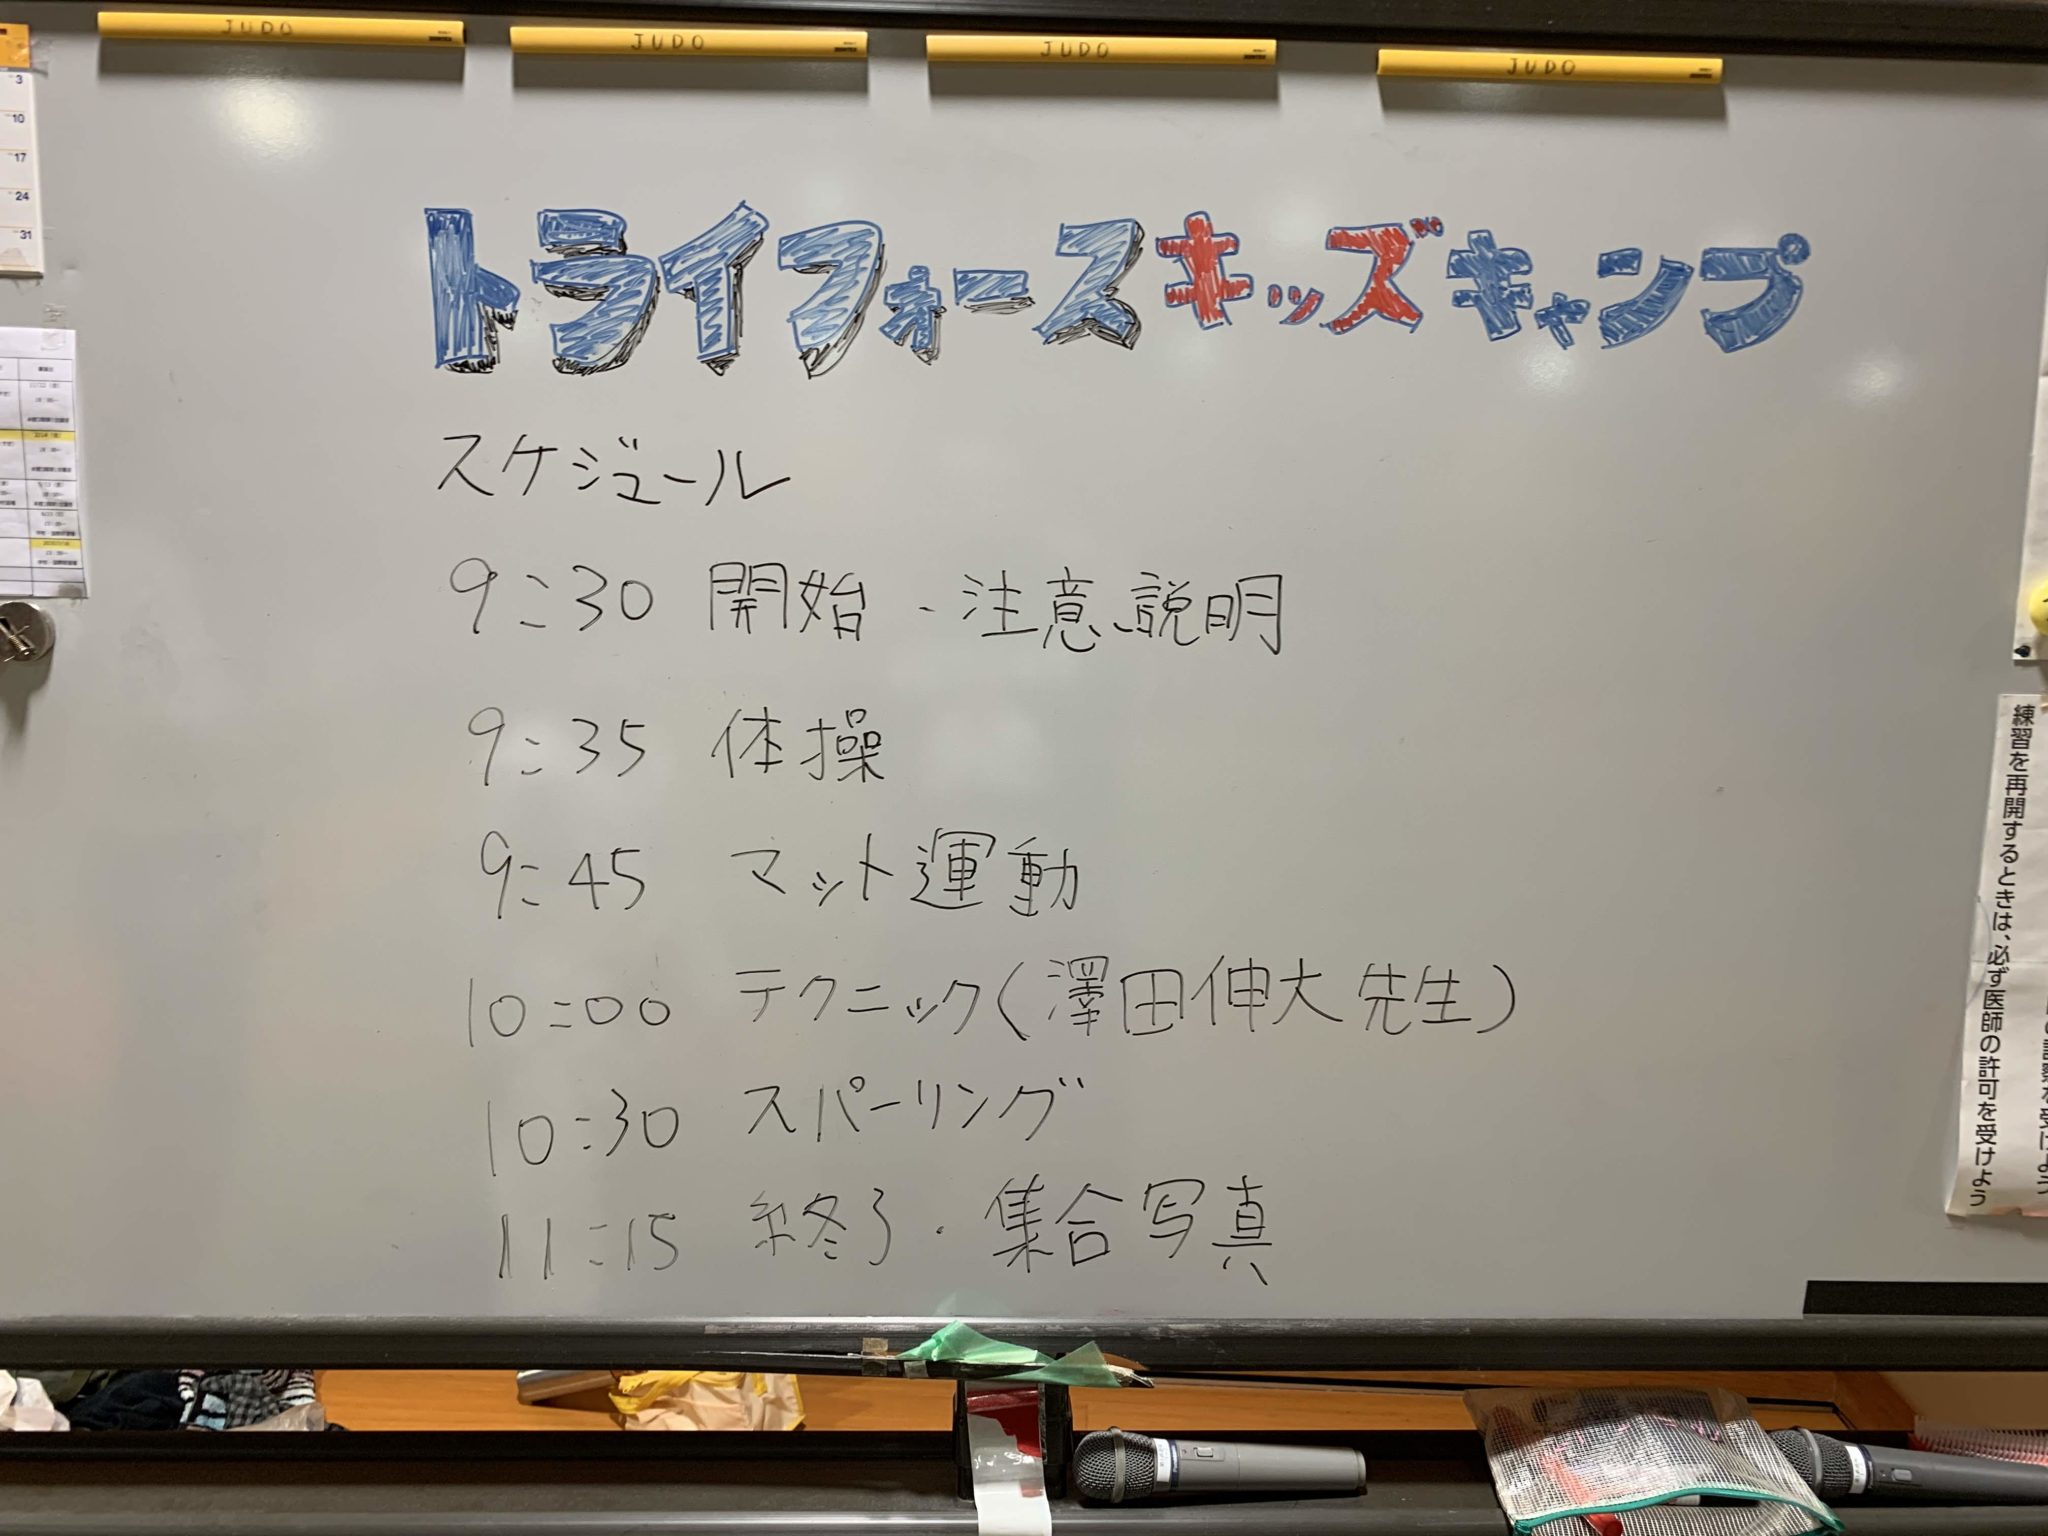 JUDO
JUDO
JUDO
JUDO
3
10
17
24
31
トライフォースキッズキャンプ
スケジュール
9:30 開始・注意説明
9:35 体操
9:45 マット運動
10:00 テクニック(澤田伸大先生)
10:30 スパーリング
11:15 終了・集合写真
練習を再開するときは、必ず医師の許可を受けよう